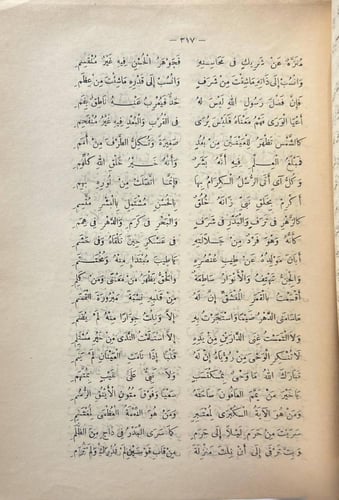 — ٣١٧ —
مُنَزَّهٌ عَنْ شَرِيكٍ فِي مَحَاسِنِهِ فَجَوْهَرُ الْحُسْنِ فِيهِ غَيْرُ مُنْقَسِمِ
وَانْسُبْ إِلَى ذَاتِهِ مَاشِئْتَ مِنْ شَرَفٍ وَانْسُبْ إِلَى قَدْرِهِ مَاشِئْتَ مِنْ عِظَمِ
فَإِنَّ فَضْلَ رَسُولِ اللهِ لَيْسَ لَهُ حَدٌّ فَيُعْرِبَ عَنْهُ نَاطِقٌ بِفَمِ
أَعْيَا الْوَرَى فَهْمُ مَعْنَاهُ فَلَيْسَ يُرَى فِي الْقُرْبِ وَالْبُعْدِ فِيهِ غَيْرُ مُنْفَحِمِ
كَالشَّمْسِ تَظْهَرُ لِلْعَيْنَيْنِ مِنْ بُعُدٍ صَغِيرَةً وَتُكِلُّ الطَّرْفَ مِنْ أَمَمِ
فَمَبْلَغُ الْعِلْمِ فِيهِ أَنَّهُ بَشَرٌ وَأَنَّهُ خَيْرُ خَلْقِ اللهِ كُلِّهِمِ
وَكُلُّ آيٍ أَتَى الرُّسْلُ الْكِرَامُ بِهَا فَإِنَّمَا اتَّصَلَتْ مِنْ نُورِهِ بِهِمِ
أَكْرِمْ بِخَلْقِ نَبِيٍّ زَانَهُ خُلُقٌ بِالْحُسْنِ مُشْتَمِلٍ بِالْبِشْرِ مُتَّسِمِ
كَالزَّهْرِ فِي تَرَفٍ وَالْبَدْرِ فِي شَرَفٍ وَالْبَحْرِ فِي كَرَمٍ وَالدَّهْرِ فِي هِمَمِ
كَأَنَّهُ وَهْوَ فَرْدٌ مِنْ جَلَالَتِهِ فِي عَسْكَرٍ حِينَ تَلْقَاهُ وَفِي حَشَمِ
أَبَانَ مَوْلِدُهُ عَنْ طِيبِ عُنْصُرِهِ يَاطِيبَ مُبْتَدَإٍ مِنْهُ وَمُخْتَتَمِ
وَالْجِنُّ تَهْتِفُ وَالْأَنْوَارُ سَاطِعَةٌ وَالْحَقُّ يَظْهَرُ مِنْ مَعْنًى وَمِنْ كَلِمِ
أَقْسَمْتُ بِالْقَمَرِ الْمُنْشَقِّ إِنَّ لَهُ مِنْ قَلْبِهِ نِسْبَةً مَبْرُورَةَ الْقَسَمِ
مَاسَامَنِي الدَّهْرُ ضَيْمًا وَاسْتَجَرْتُ بِهِ إِلَّا وَنِلْتُ جِوَارًا مِنْهُ لَمْ يُضَمِ
وَلَا الْتَمَسْتُ غِنَى الدَّارَيْنِ مِنْ يَدِهِ إِلَّا اسْتَلَمْتُ النَّدَى مِنْ خَيْرِ مُسْتَلَمِ
لَا تُنْكِرِ الْوَحْيَ مِنْ رُؤْيَاهُ إِنَّ لَهُ قَلْبًا إِذَا نَامَتِ الْعَيْنَانِ لَمْ يَنَمِ
تَبَارَكَ اللهُ مَا وَحْيٌ بِمُكْتَسَبٍ وَلَا نَبِيٌّ عَلَى غَيْبٍ بِمُتَّهَمِ
يَاخَيْرَ مَنْ يَمَّمَ الْعَافُونَ سَاحَتَهُ سَعْيًا وَفَوْقَ مُتُونِ الْأَيْنُقِ الرُّسُمِ
وَمَنْ هُوَ الْآيَةُ الْكُبْرَى لِمُعْتَبِرٍ وَمَنْ هُوَ النِّعْمَةُ الْعُظْمَى لِمُغْتَنِمِ
سَرَيْتَ مِنْ حَرَمٍ لَيْلًا إِلَى حَرَمٍ كَمَا سَرَى الْبَدْرُ فِي دَاجٍ مِنَ الظُّلَمِ
وَبِتَّ تَرْقَى إِلَى أَنْ نِلْتَ مَنْزِلَةً مِنْ قَابِ قَوْسَيْنِ لَمْ تُدْرَكْ وَلَمْ تُرَمِ